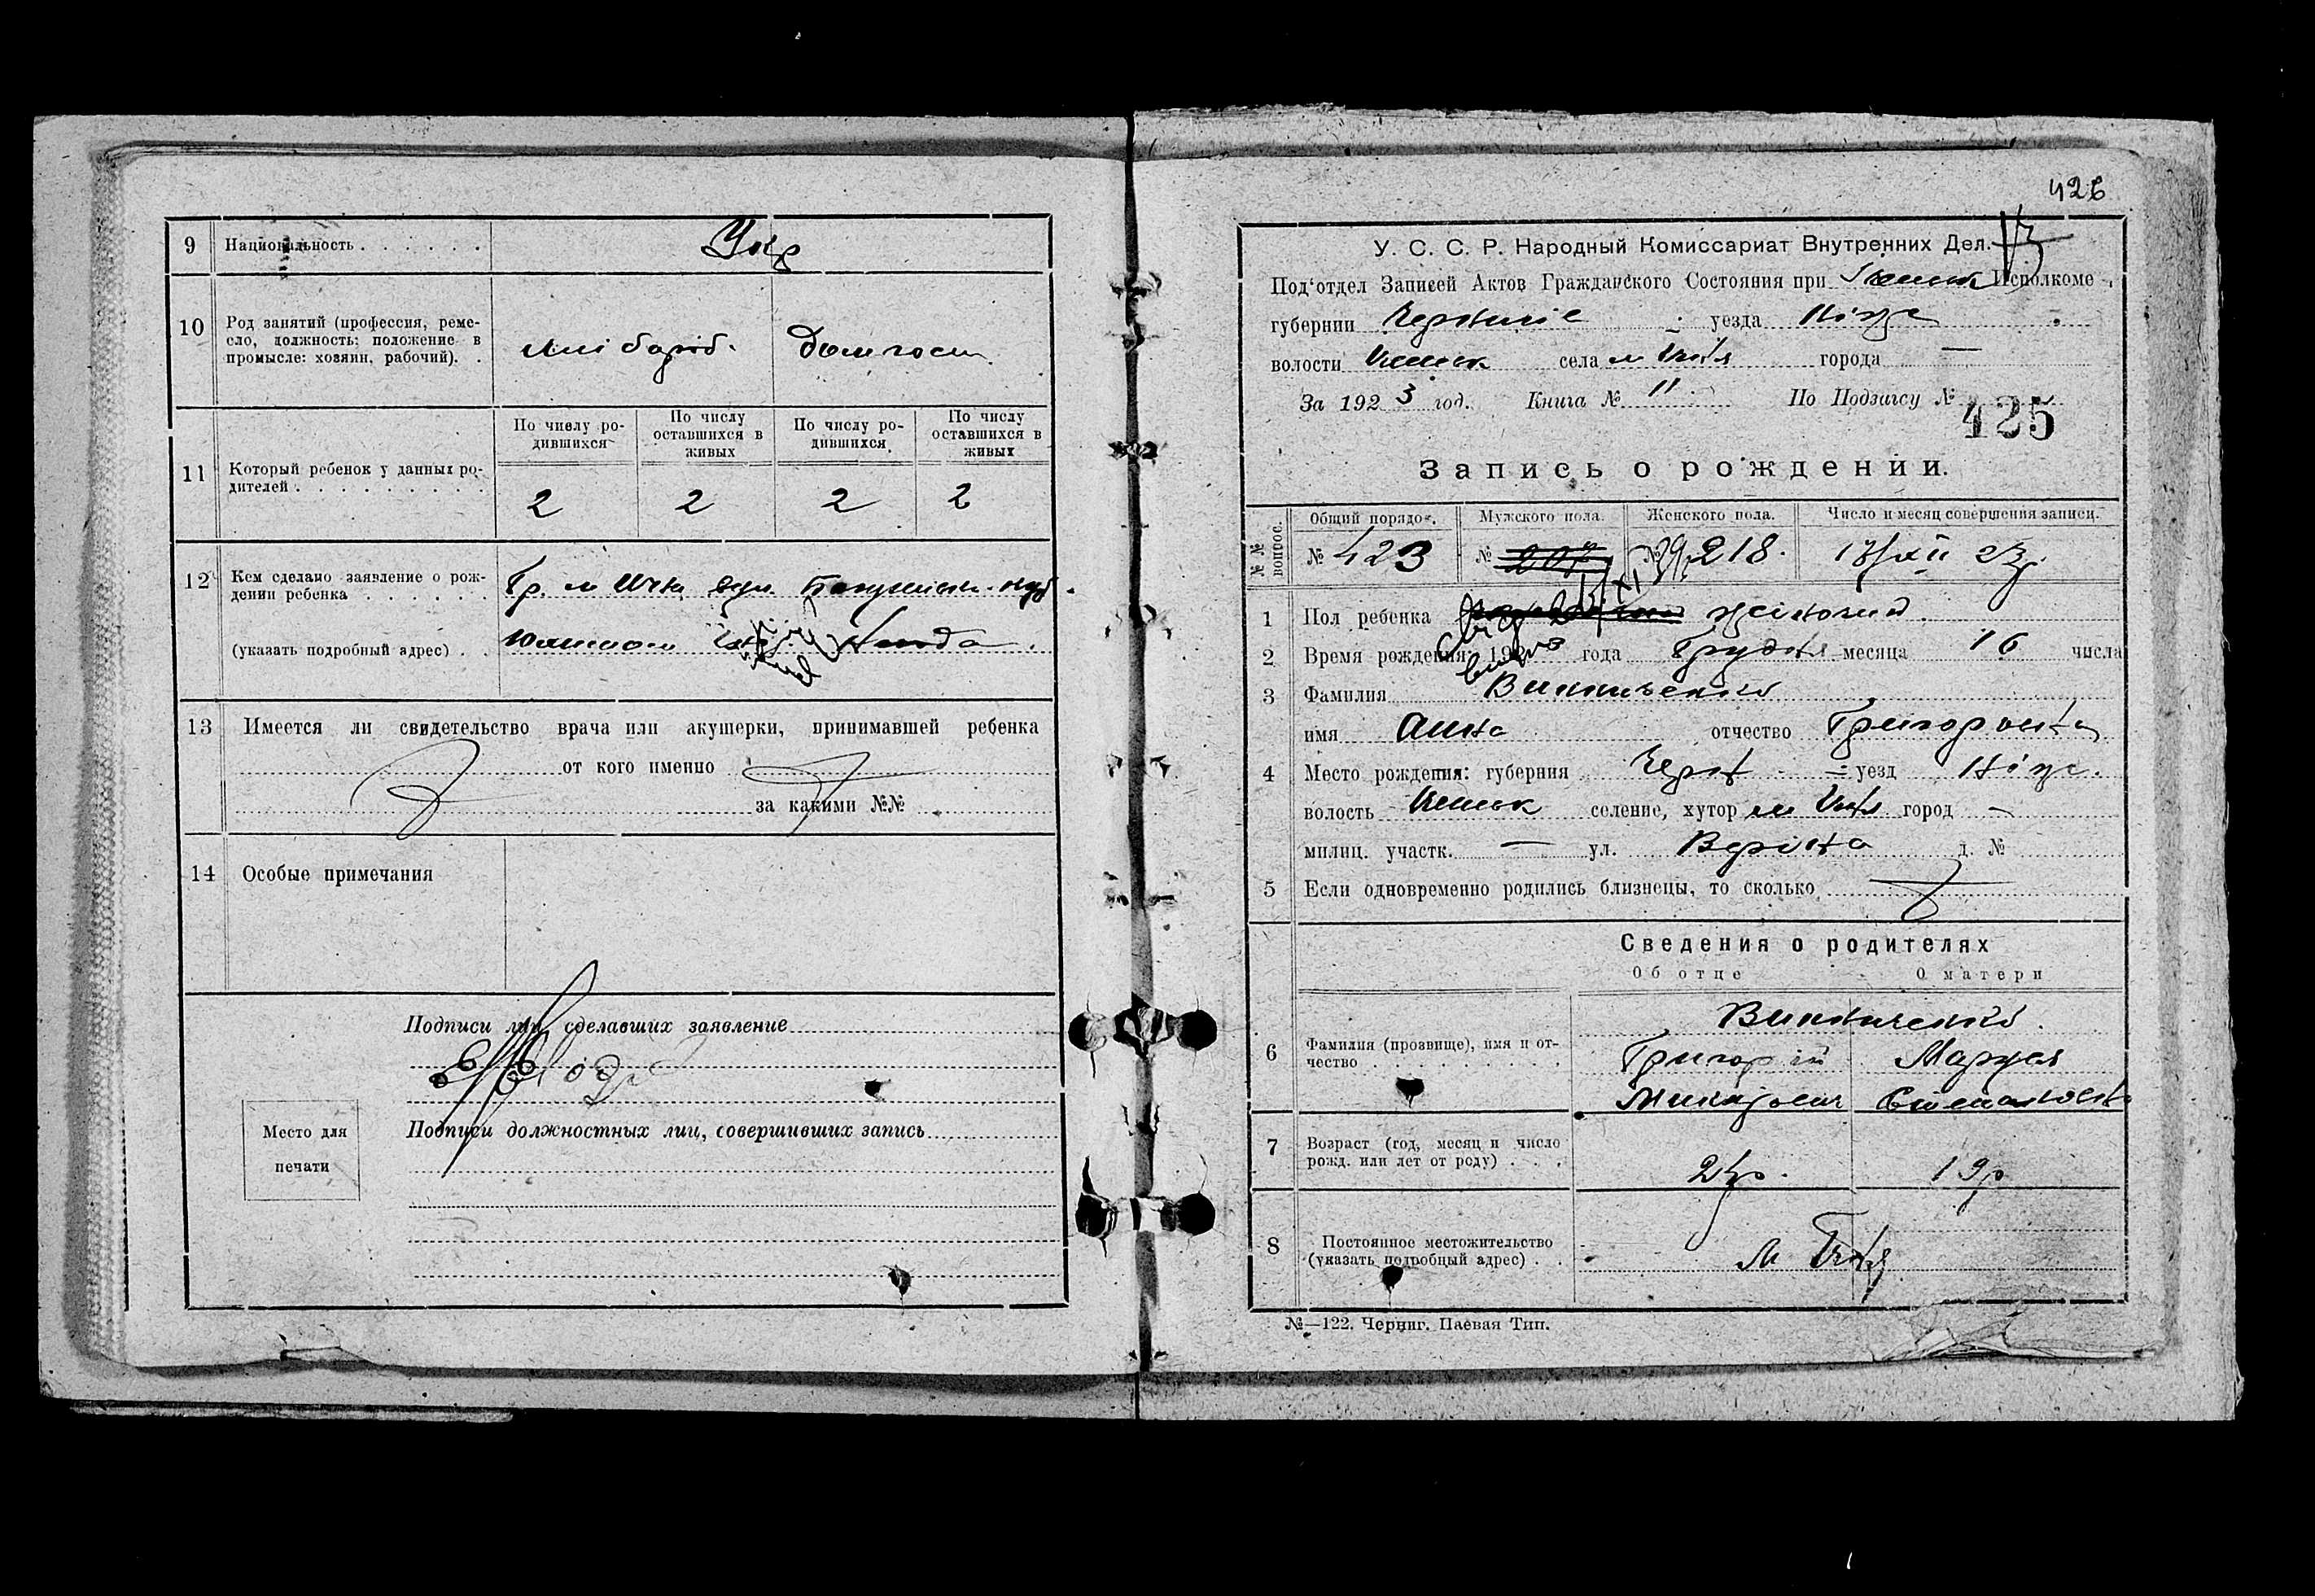 9 Национальность Укр
10 Род занятий (профессия, реме-
сло, должность: положение в
промысле: хозяин, рабочий).
хлібороб. Домгосп.
11 Который ребенок у данных ро-
дителей
По числу ро-
дившихся
По числу
оставшихся в
живых
По числу ро-
дившихся
По числу
оставшихся в
живых
2 2 2 2
12 Кем сделано заявление о рож-
дении ребенка Гр. м Ична вул.
(указать подробный адрес)
13 Имеется ли свидетельство врача или акушерки, принимавшей ребенка
от кого именно
за какими №№
14 Особые примечания
Подписи лиц, сделавших заявление
Подписи должностных лиц, совершивших запись
Место для
печати
426
У. С. С. Р. Народный Комиссариат Внутренних Дел.
Под'отдел Записей Актов Гражданского Состояния при Исполкоме
губернии уезда Ніж
волости села м Ічня города —
За 1923 год. Книга № 11 По Подзагсу № 425
Запись о рождении.
№№ вопрос. Общий порядо Мужского пола. Женского пола. Число и месяц совершения записи.
№ 423 № 207 № 218. 17/XII 23
1 Пол ребенка жіночий
2 Время рождения: 192 года Грудня месяца 16 числа
3 Фамилия Винниченко
имя Анна отчество Григоровна
4 Место рождения: губерния Черн уезд Ніж.
волость селение, хутор м Ічня город —
милиц. участк. — ул. д. №
5 Если одновременно родились близнецы, то сколько
Сведения о родителях
Об отце О матери
6 Фамилия (прозвище), имя и от-
чество
Винниченко
Григорій Маруся
Степановна
7 Возраст (год, месяц и число
рожд. или лет от роду)
19р
8 Постоянное местожительство
(указать подробный адрес)
м Ічня
№—122. Черниг. Паевая Тип.